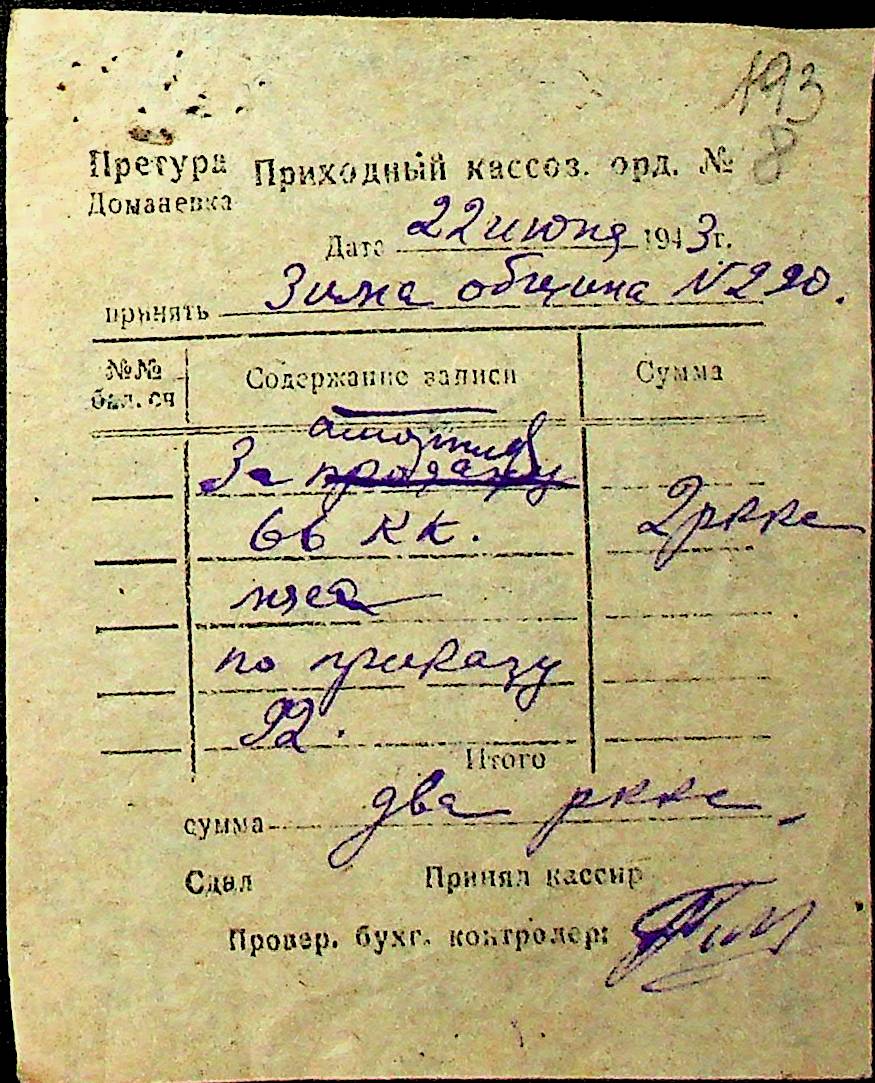 193
8
Претура Приходный кассов. орд. №
Доманевка
Дата 22 июня 1943 г.
принять Зима община №220.
№№ бал. сч Содержание записи Сумма
За продажу
66 КК. 2 ркке
мяса
по приказу
92.
Итого
сумма два ркке
Сдал Принял кассир
Провер. бухг. контролер: